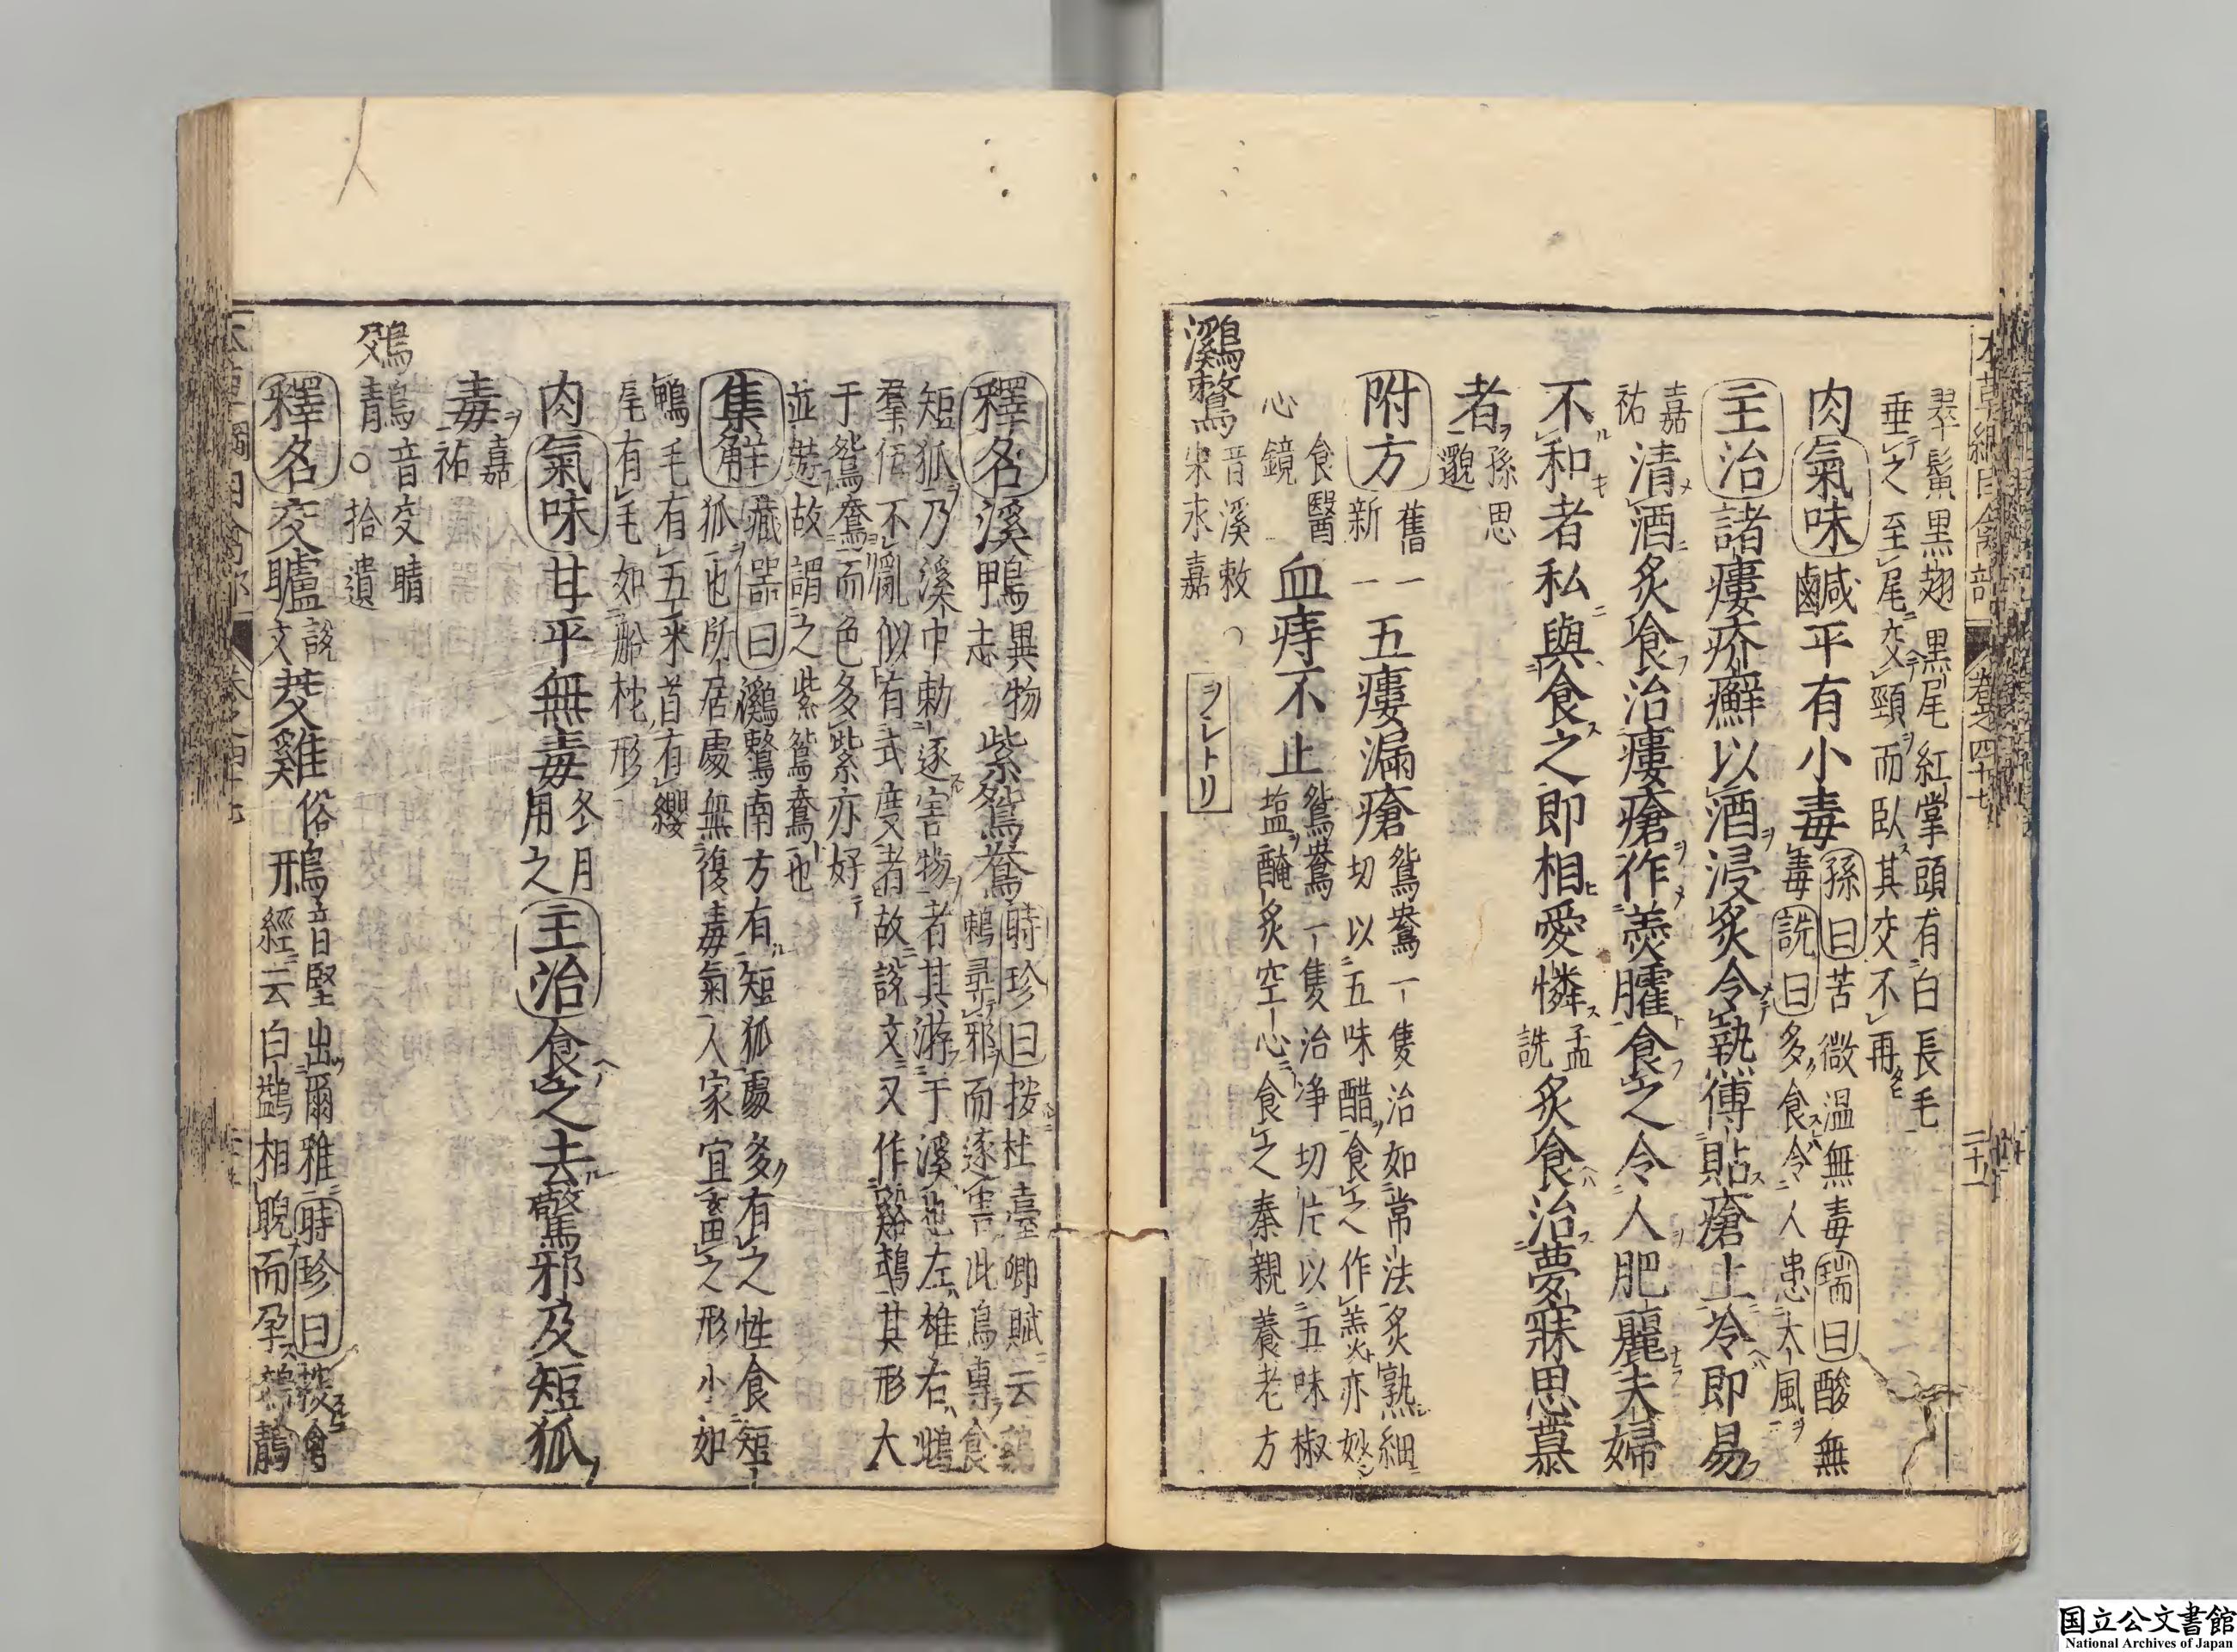 翠鬣黒翅黒尾紅掌頭有白長毛
垂之至尾交頸而臥其交不再
肉氣味鹹平有小毒孫曰苦微温無毒瑞曰酸無
毒詵曰多食令人患大風
主治諸瘻疥癬以酒浸炙令熱傅貼瘡上冷即易
嘉祐清酒炙食治瘻瘡作羹臛食之令人肥麗夫婦
不和者私與食之即相愛憐孟詵炙食治夢寐思慕
者孫思邈
附方舊一新一五瘻漏瘡鴛鴦一隻治如常法炙熟細
切以五味醋食之作羹亦妙
食醫心鏡血痔不止鴛鴦一隻治净切片以五味椒
塩醃炙空心食之奉親養老方
鸂鷘音溪敕宋嘉
ヲシトリ
釋名溪鴨異物志紫鴛鴦時珍曰按杜臺卿賦云鸂
鷘尋邪而逐害此鳥專食
短狐乃溪中勅逐害物者其游于溪也左雄右雌
羣伍不亂似有式度者故說文又作谿鷘其形大
于鴛鴦而色多紫亦好
並遊故謂之紫鴛鴦也
集解藏器曰鸂鷘南方有短狐處多有之性食短
狐也所居處無復毒氣人家宜畜之形小如
鴨毛有五采首有纓
尾有毛如船柁形
肉氣味甘平無毒冬月用之主治食之去驚邪及短狐
毒嘉祐
鵁鶄音交睛
○拾遺
釋名交矑說文茭雞俗鳽音堅出爾雅時珍曰按禽
經云白鷁相睨而孕鵁鶄
本草綱目禽部 卷之四十七 二十一
国立公文書館
National Archives of Japan